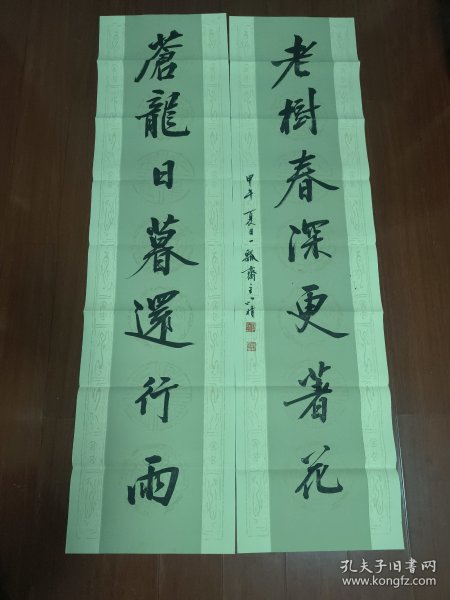 老樹春深更著花
蒼龍日暮還行雨
甲午夏日一瓢齋主
孔夫子旧书网
www.kongfz.com